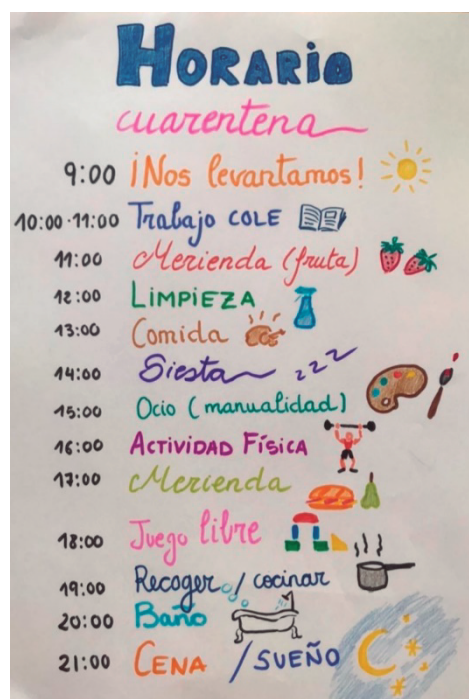 HORARIO
cuarentena
9:00 ¡Nos levantamos!
10:00·11:00 Trabajo COLE
11:00 Merienda (fruta)
12:00 LIMPIEZA
13:00 Comida
14:00 Siesta zzz
15:00 Ocio (manualidad)
16:00 ACTIVIDAD FÍSICA
17:00 Merienda
18:00 Juego libre
19:00 Recoger / cocinar
20:00 Baño
21:00 CENA / SUEÑO